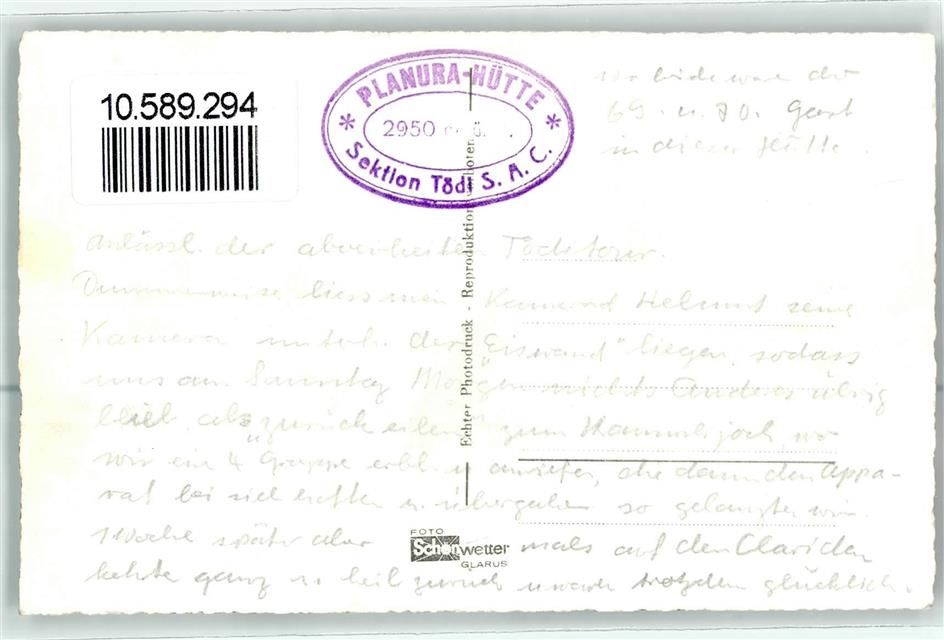 10.589.294
PLANURA-HÜTTE
2950 m. ü.
* Sektion Tödi S. A. C. *
wo beide war der
69. u. 70. Gast
in dieser Hütte.
anlässl. der Tödi tour.
liess mein Kamerad Helmut seine
Kamera unterh. der "Eiswand" liegen, sodass
uns am Sonntag Morgen nichts Anderes übrig
blieb, als "zurück eilen" zum joch, wo
wir ein 4 Gruppe erbl. u. anriefen, die dann den Appa-
rat bei sich hatten u. übergaben so gelangten wir
1 Woche später aber mals auf den Clariden
kehrte ganz u. heil zurück u. waren trotzdem glücklich.
Echter Photodruck - Reproduktion verboten
FOTO
Schönwetter
GLARUS